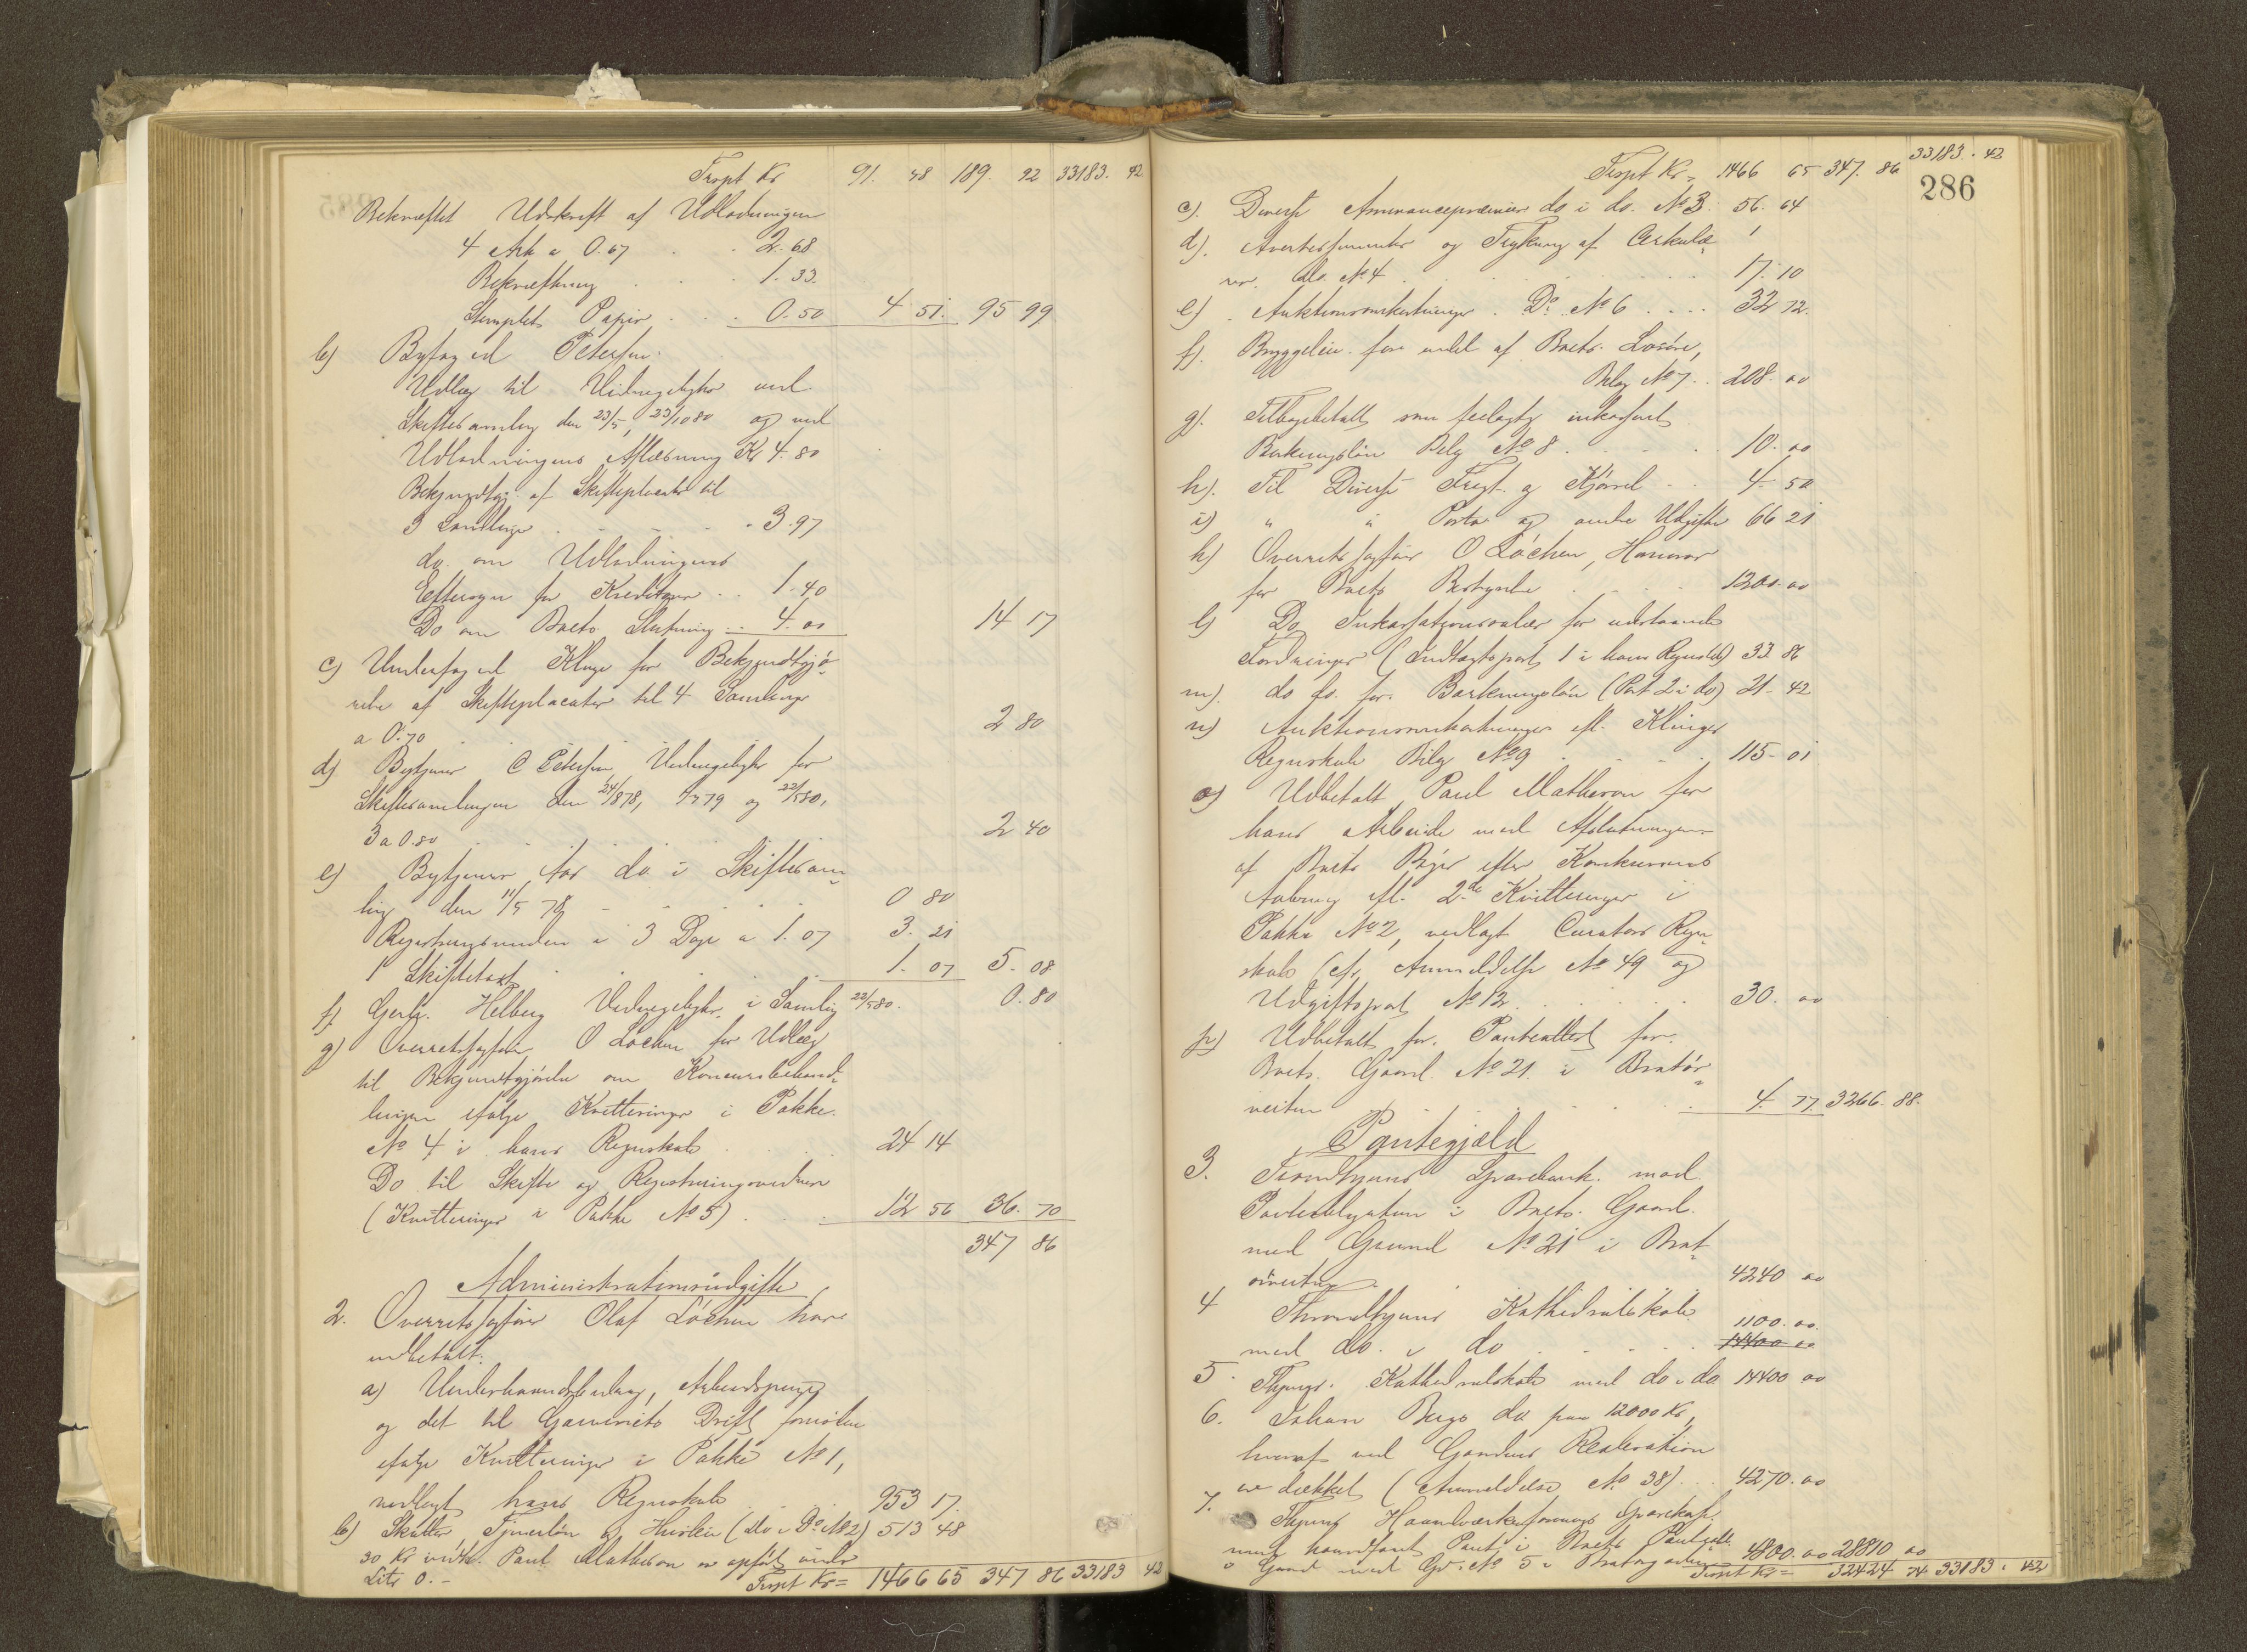 Trspt Kr 91. 48 189. 92 33183. 42
Bekræftet Udskrift af Udlodningen
4 Ark a 0.67 2.68
Bekræftning 1.33.
Stemplet Papir 0.50 4 51. 95 99
b) Byfoged Petersen:
Udlæg til Vidnegebyhr ved
Skiftesamling den 23/5, 23/10 80 og ved
Udlodningens Aflæsning Kr 4.80
Bekjendtgj. af Skifteplacater til
3 Samlinger 3.97
do. om Udlodningens
Eftersyn for Kreditorer 1.40
Do om Boets Slutning 4.00 14 17
c) Underfoged Kluge for Bekjendtgjö-
relse af Skifteplacater til 4 Samlinger
a 0.70 2 80
d) Bytjener C Petersen Vidnegebyhr for
Skiftesamlingen den 24/8 78, 79 og 22/5 80,
3 a 0.80 2 40
e) Bytjener Aas do. i Skiftesam
ling den 11/5 78 0 80
Registreringsvidner i 3 Dage a 1.07 3. 21
1 Skiftetaxt 1. 07 5. 08
f) Helberg Vidnegebyhr. i Samling 22/5 80. 0.80
g) Overretssagfører O Löchen for Udlæg
til Bekjendtgjörelse om Konkursbehand-
lingen ifølge Kvitteringer i Pakke
No 4 i hans Regnskab 24 14
Do til Skifte og Registreringsvidner
(Kvitteringer i Pakke No 5) 12 56 36. 70
347 86
Administrationsudgifter
2. Overretssagförer Olaf Löchen have
udbetalt:
a) Underhaandsbidrag, Arbeidspenge
og det til Garveriets Drift fornödne
ifølge Kvitteringer i Pakke No 1,
vedlagt hans Regnskab 953 17.
b) Skatter, Tjenerlön og Husleie (do i Do No 2) 513 48
30 Kr vedk. Paul Matheson er opfört under
Litr O.- Trspt Kr = 1466 65 347 86 33183 42
Trspt Kr = 1466 65 347. 86 33183. 42
286
c). Diverse Assurancepræmier do i do. No 3. 56. 64
d). Avertissementer og Trykning af Cirkulæ-
rer. do. No 4 17. 10
e) Auktionsomkostninger. Do No 6 32 72.
f). Bryggeleie for endel af Boets Losöre,
Bilag No 7. 208. 00
g). Tilbagebetalt som feilagtig inkasseret
Barkningslön Bilag No 8 10. 00
h). Til Diverse Fragt og Kjörsel 4. 50
i) " " Porto og andre Udgifter 66 21
k) Overretssagförer O Löchen, Honorar
for Boets Bestyrelse 1200.00
l) Do Inkassationssalær for udestaaende
Fordringer (Indtægtspost 1 i hans Regnskab) 33. 86
m). do do. for Barkningslön (Post 2 i do) 21- 42
n) Auktionsomkostninger efl. Klinges
Regnskab Bilag No 9 115- 01
o) Udbetalt Paul Matheson for
hans Arbeide med Afslutningen
af Boets Böger efter Konkursens
Aabning efl. 2de Kvitteringer i
Pakke No 2, vedlagt Curators Regn-
skab (cfr. Anmeldelse No 49 og
Udgiftspost No 12 30. 00
p) Udbetalt for Panteattest for
Boets Gaard No 21 i Bratör-
veiten 4. 77. 3266. 88.
Pantegjæld
3. Trondhjems Sparebank mod
Panteobligation i Boets Gaard
med Grund No 21 i Brat-
örveiten 4240 00
4 Throndhjems Kathedralskole 1100.00.
med do. i do 14400 00
5. Thjems. Kathedralskole med do i do 14400 00
6. Johan Berg do paa 12000 Kr,
hvoraf ved Gaardens Realisation
er dækket (Anmeldelse No 38) 4270.00
7. Thjems Haandværkerforenings Sparekasse
med haandfaaet Pant i Boets Panteobl.
i Gaard med Gr. No 5 i 4800.00 28810 00
Trspt Kr = 32424 74 33183. 42